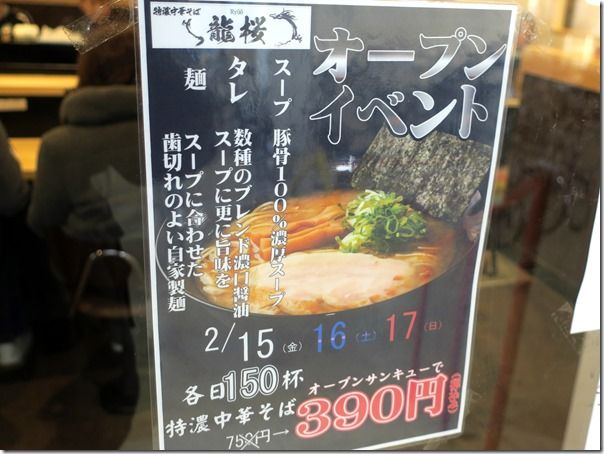 特濃中華そば
Ryūō
龍桜
オープン
イベント
スープ 豚骨100%濃厚スープ
タレ 数種のブレンド濃口醤油
スープに更に旨味を
麺 スープに合わせた
歯切れのよい自家製麺
2/15(金) 16(土) 17(日)
各日150杯
オープンサンキューで
特濃中華そば 390円
750円→